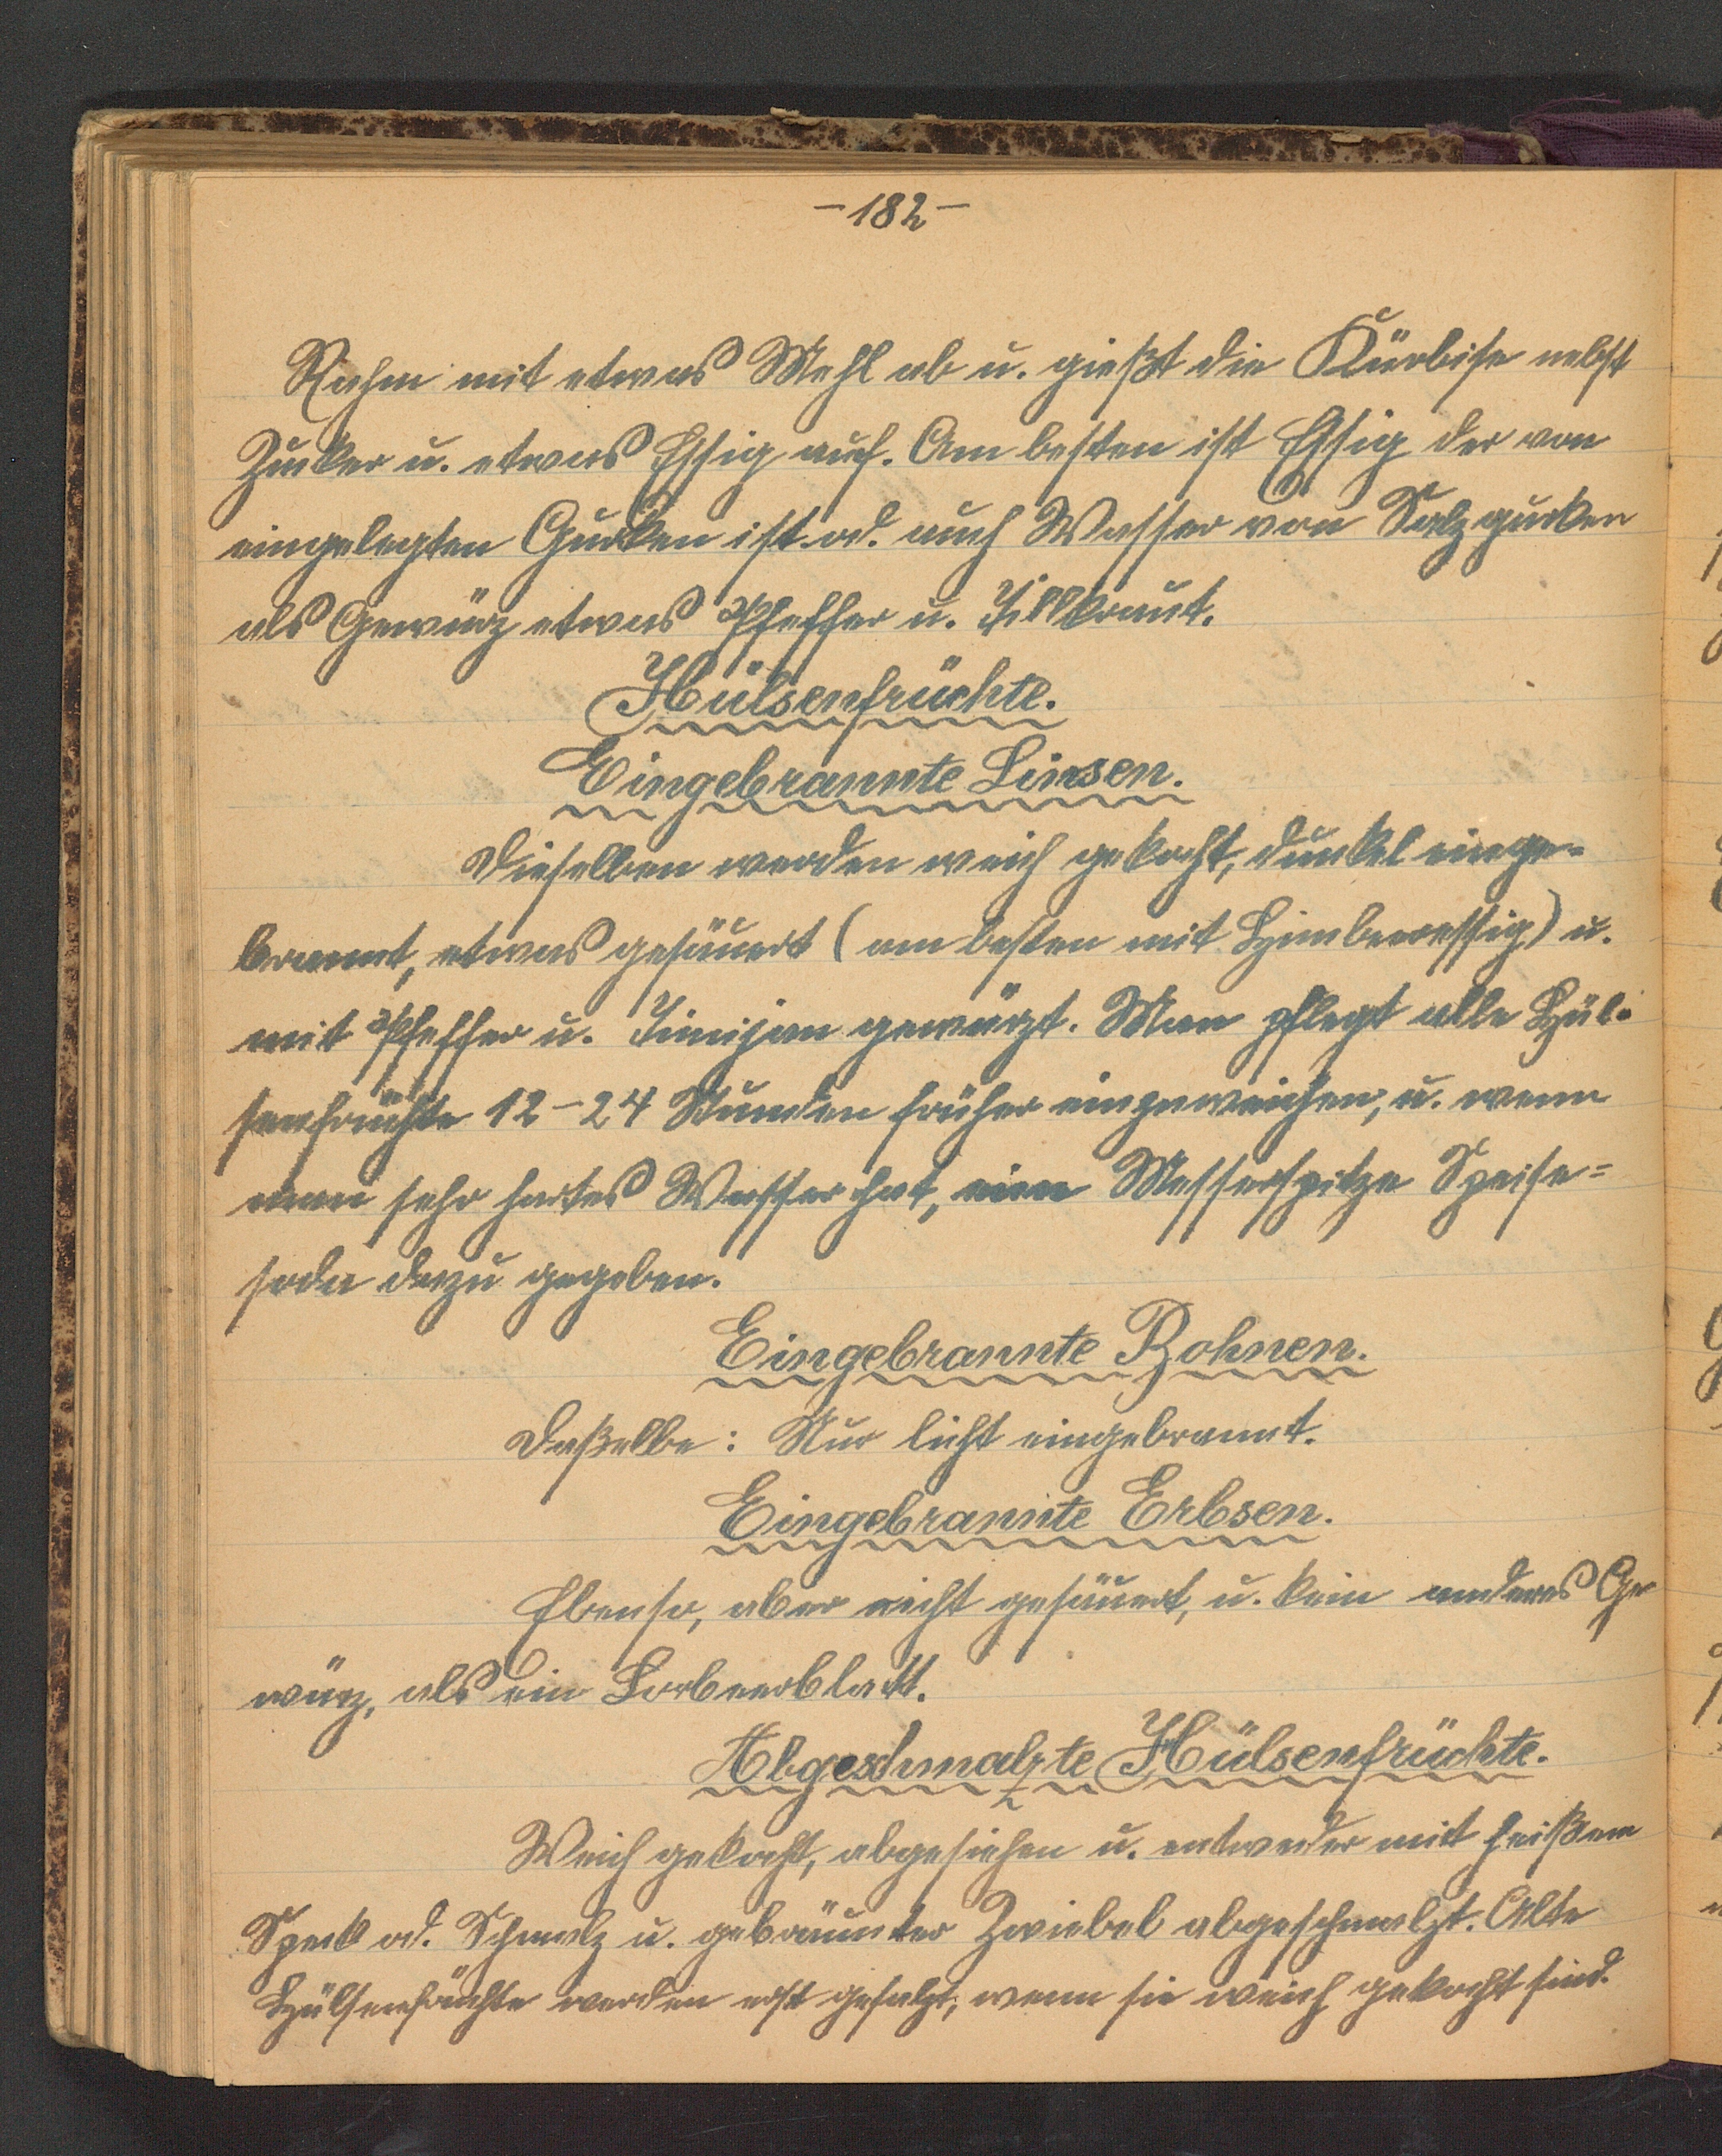 -182-
Rahm mit etwas Mehl ab u. gießt die Kürbise nebst
Zucker u. etwas Essig auf. Am besten ist Essig der von
eingelegten Gurken ist od. auch Wasser von Salzgurken
als Gewürz etwas Pfeffer u. Dillkraut.
Hülsenfrüchte.
Eingebrannte Linsen.
Dieselben werden weich gekocht, dunkel einge-
brannt, etwas gesäuert (am besten mit Himbeeressig) u.
mit Pfeffer u. Timijan gewürzt. Man pflegt alle Hül-
senfrüchte 12-24 Stunden früher einzuweichen, u. wenn
man sehr hartes Wasser hat, eine Messerspitze Speise=
soda dazu gegeben.
Eingebrannte Bohnen.
Daßelbe: Nur licht eingebrannt.
Eingebrannte Erbsen.
Ebenso, aber nicht gesäuert, u. kein anderes Ge
würz, als ein Lorbeerblatt.
Abgeschmalzte Hülsenfrüchte.
Weich gekocht, abgesiehen u. entweder mit heißem
Speck od. Schmalz u. gebräunter Zwiebel abgeschmalzt. Alte
Hülsenfrüchte werden erst gesalzt, wenn sie weich gekocht sind.